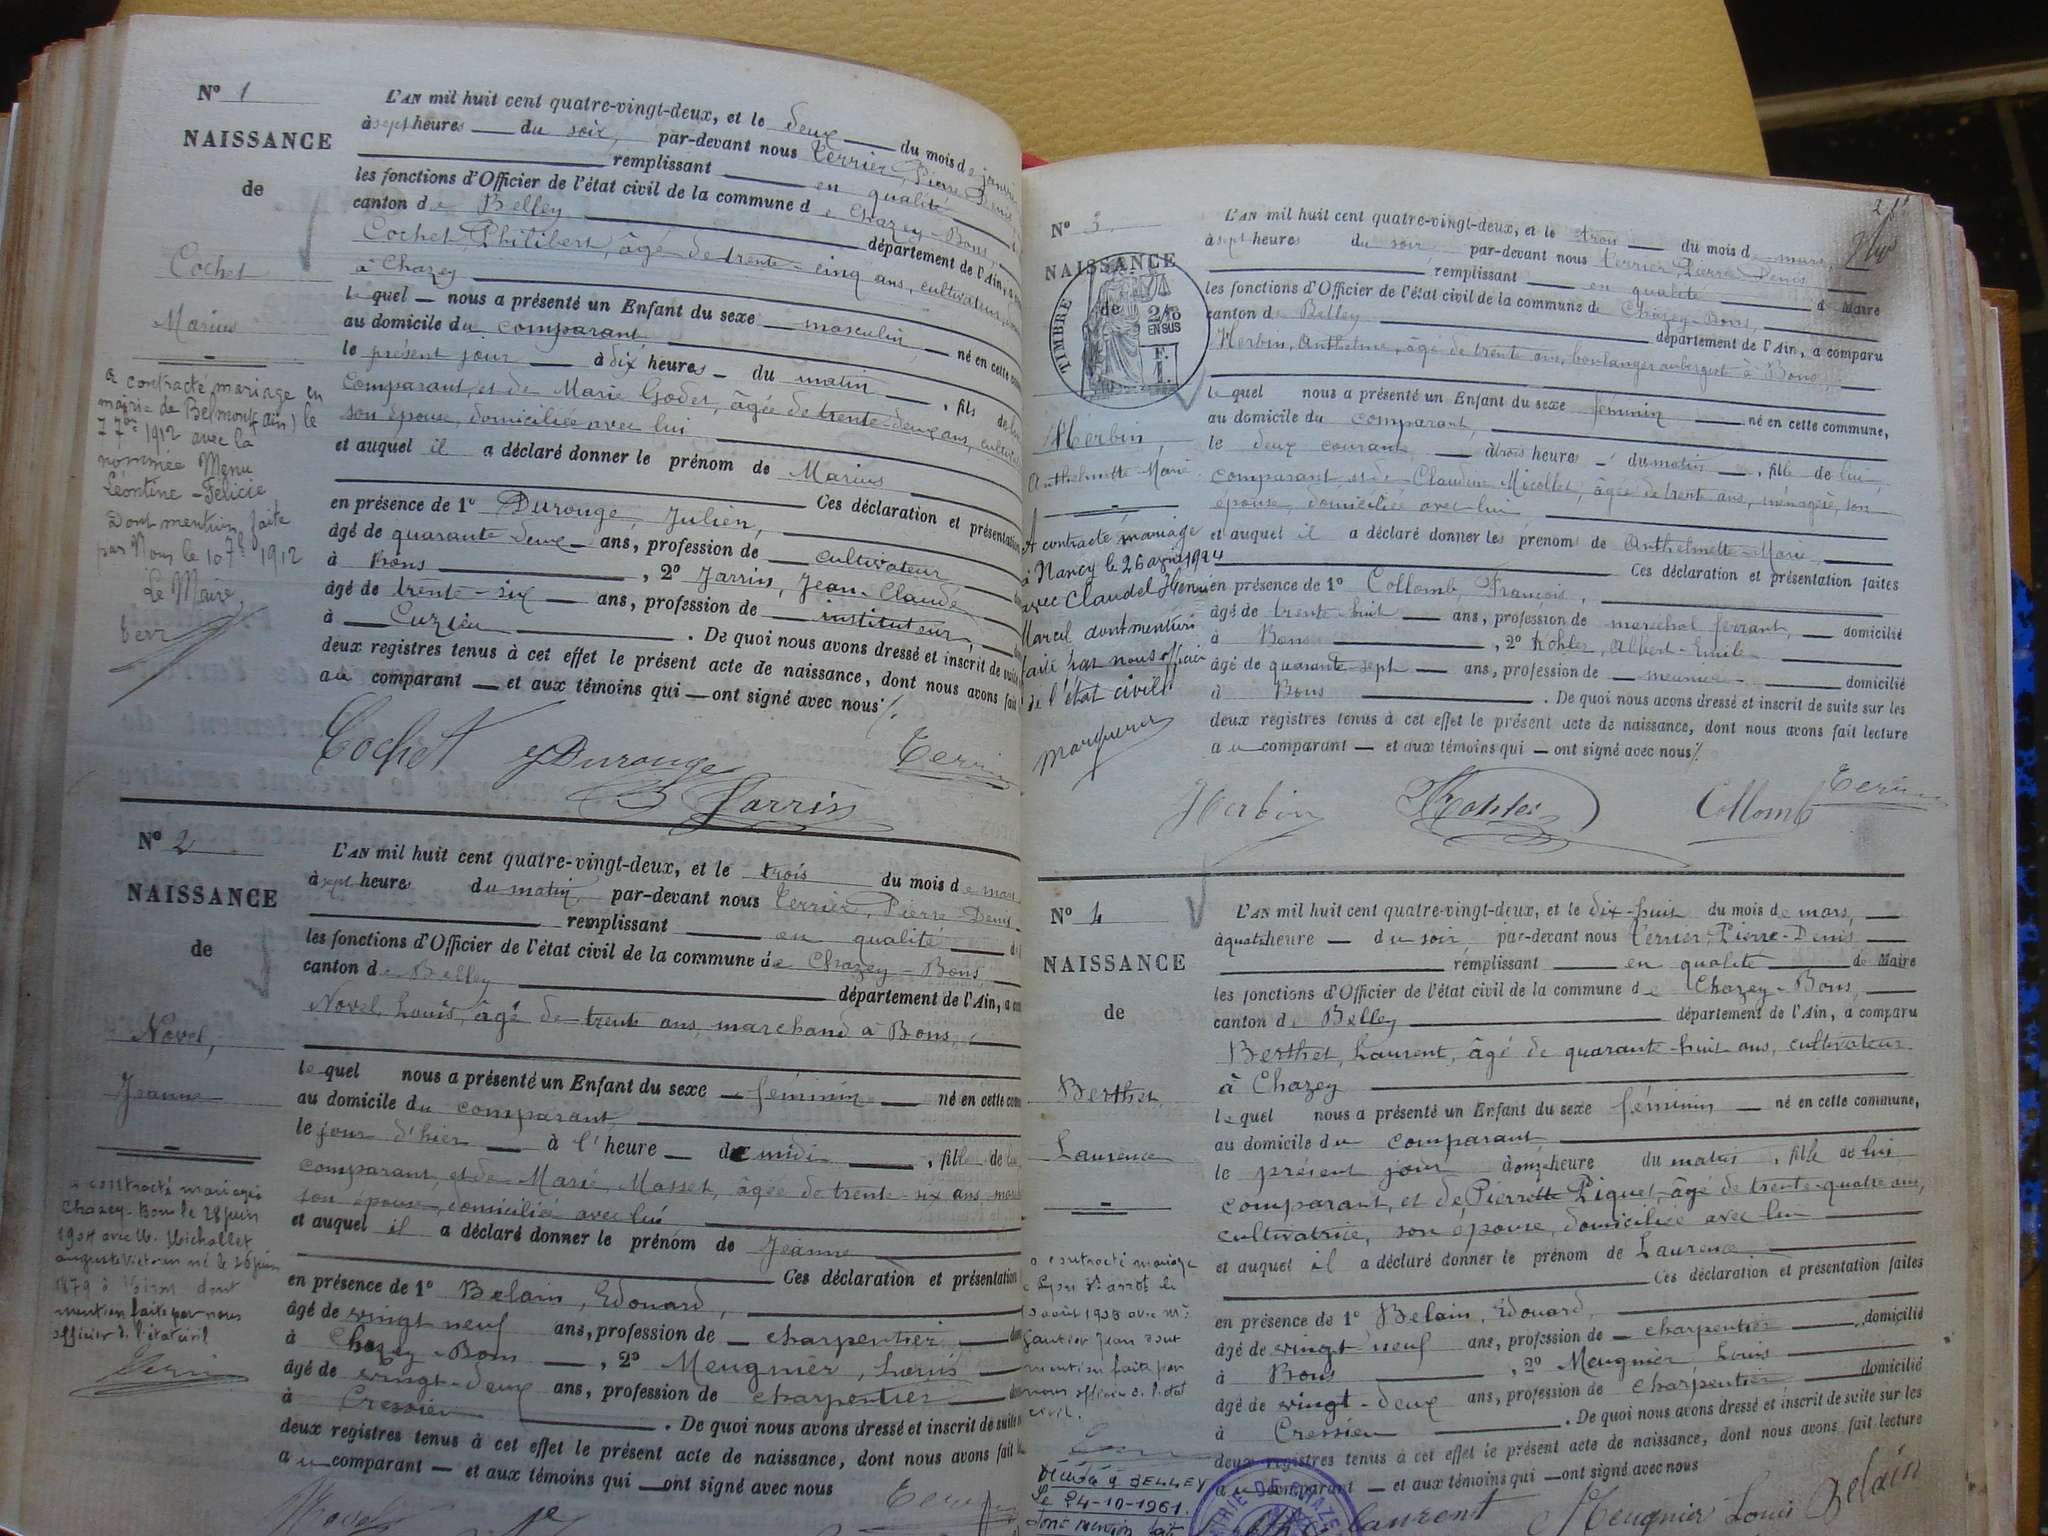 N° 1
NAISSANCE
de
Cochet
Marius
a contracté mariage en
mairie de Belmont (ain) le
7 7bre 1912 avec la
nommée Menu
Léontine-Félicie
Dont mention faite
par Nous le 10 7bre 1912
Le Maire,
L'AN mil huit cent quatre-vingt-deux, et le deux du mois de janvier
à sept heures du soir, par-devant nous Terrier, Pierre Denis
remplissant en qualité
les fonctions d'Officier de l'état civil de la commune de Chazey-Bons,
canton de Belley département de l'Ain, a
Cochet Philibert, âgé de trente-cinq ans, cultivateur,
à Chazey
lequel nous a présenté un Enfant du sexe masculin, né en cette
au domicile du comparant,
le présent jour à dix heures du matin, fils de lui
comparant, et de Marie Godet, âgée de trente-deux ans,
son épouse, domiciliée avec lui
et auquel il a déclaré donner le prénom de Marius
Ces déclaration et présentation
en présence de 1° Durouge, Julien,
âgé de quarante deux ans, profession de cultivateur
à Bons, 2° Jarrin, Jean-Claude
âgé de trente-six ans, profession de instituteur,
à Cuzieu. De quoi nous avons dressé et inscrit de suite
deux registres tenus à cet effet le présent acte de naissance, dont nous avons fait
au comparant et aux témoins qui ont signé avec nous
Cochet Durouge Terrier
Jarrin
N° 2
NAISSANCE
de
Novel,
Jeanne
a contracté mariage
Chazey-Bons le 28 juin
1904 avec M. Michallet
auguste Victorin né le 26 juin
1879 à Voiron dont
mention faite par nous
officier de l'état civil
L'AN mil huit cent quatre-vingt-deux, et le trois du mois de mars
à sept heures du matin, par-devant nous Terrier, Pierre-Denis
remplissant en qualité
les fonctions d'Officier de l'état civil de la commune de Chazey-Bons,
canton de Belley département de l'Ain, a
Novel, Louis, âgé de trente ans, marchand à Bons,
lequel nous a présenté un Enfant du sexe féminin né en cette
au domicile du comparant,
le jour d'hier à l'heure de midi, fille de lui
comparant, et de Marie Masset, âgée de trente-six ans,
son épouse, domiciliée avec lui
et auquel il a déclaré donner le prénom de Jeanne
Ces déclaration et présentation
en présence de 1° Belain, Edouard,
âgé de vingt neuf ans, profession de charpentier
à Chazey-Bons, 2° Meugnier, Louis
âgé de vingt-deux ans, profession de charpentier
à Cressieu. De quoi nous avons dressé et inscrit de suite
deux registres tenus à cet effet le présent acte de naissance, dont nous avons fait
au comparant et aux témoins qui ont signé avec nous
Novel
N° 3
NAISSANCE
de
TIMBRE
2/10
EN SUS
Herbin,
Anthelmette-Marie
A contracté mariage
à Nancy le 26 avril 1924
avec Claudel Henri
Marcel dont mention
faite par nous officier
de l'état civil.
L'AN mil huit cent quatre-vingt-deux, et le trois du mois de mars,
à sept heures du soir, par-devant nous Terrier, Pierre Denis
remplissant en qualité de Maire
les fonctions d'Officier de l'état civil de la commune de Chazey-Bons,
canton de Belley département de l'Ain, a comparu
Herbin, Anthelme, âgé de trente ans, boulanger aubergiste à Bons,
lequel nous a présenté un Enfant du sexe féminin né en cette commune,
au domicile du comparant,
le deux courant à trois heures du matin, fille de lui,
comparant, et de Claudine Micollet, âgée de trente ans, ménagère, son
épouse, domiciliée avec lui
et auquel il a déclaré donner les prénoms de Anthelmette-Marie,
Ces déclaration et présentation faites
en présence de 1° Collomb, François,
âgé de trente-huit ans, profession de maréchal ferrant, domicilié
à Bons, 2° Kohler, Albert-Emile
âgé de quarante-sept ans, profession de meunier domicilié
à Bons. De quoi nous avons dressé et inscrit de suite sur les
deux registres tenus à cet effet le présent acte de naissance, dont nous avons fait lecture
au comparant et aux témoins qui ont signé avec nous
Herbin Kohler Collomb Terrier
N° 4
NAISSANCE
de
Berthet
Laurence
a contracté mariage
août 1908 avec Mr
Gautier Jean dont
mention faite par
nous officier de l'état
civil.
Décédée à BELLEY
Le 24-10-1961.
dont mention faite
L'AN mil huit cent quatre-vingt-deux, et le dix-huit du mois de mars,
à quatre heure du soir, par-devant nous Terrier, Pierre-Denis
remplissant en qualité de Maire
les fonctions d'Officier de l'état civil de la commune de Chazey-Bons,
canton de Belley département de l'Ain, a comparu
Berthet, Laurent, âgé de quarante-huit ans, cultivateur
à Chazey
lequel nous a présenté un Enfant du sexe féminin né en cette commune,
au domicile du comparant
le présent jour à onze heure du matin, fille de lui
comparant, et de Pierrette Piquet, âgée de trente-quatre ans,
cultivatrice, son épouse, domiciliée avec lui
et auquel il a déclaré donner le prénom de Laurence
Ces déclaration et présentation faites
en présence de 1° Belain, Edouard,
âgé de vingt neuf ans, profession de charpentier domicilié
à Bons, 2° Meugnier, Louis
âgé de vingt-deux ans, profession de charpentier domicilié
à Cressieu. De quoi nous avons dressé et inscrit de suite sur les
deux registres tenus à cet effet le présent acte de naissance, dont nous avons fait lecture
au comparant et aux témoins qui ont signé avec nous
MAIRIE DE CHAZE
laurent Meugnier Louis Belain